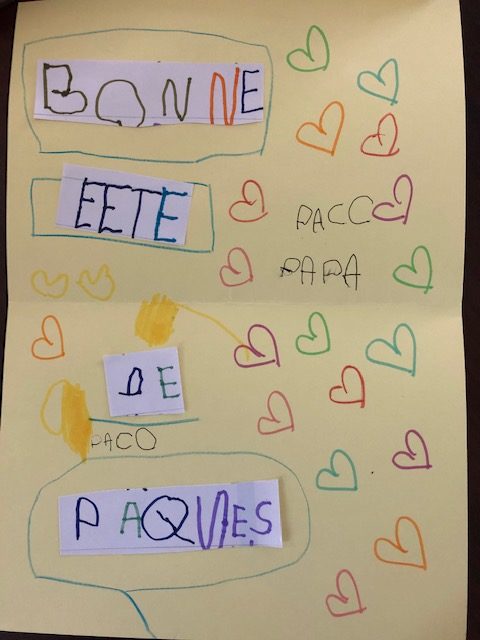 BONNE
EETE
PACO
PAPA
DE
PACO
PAQUES